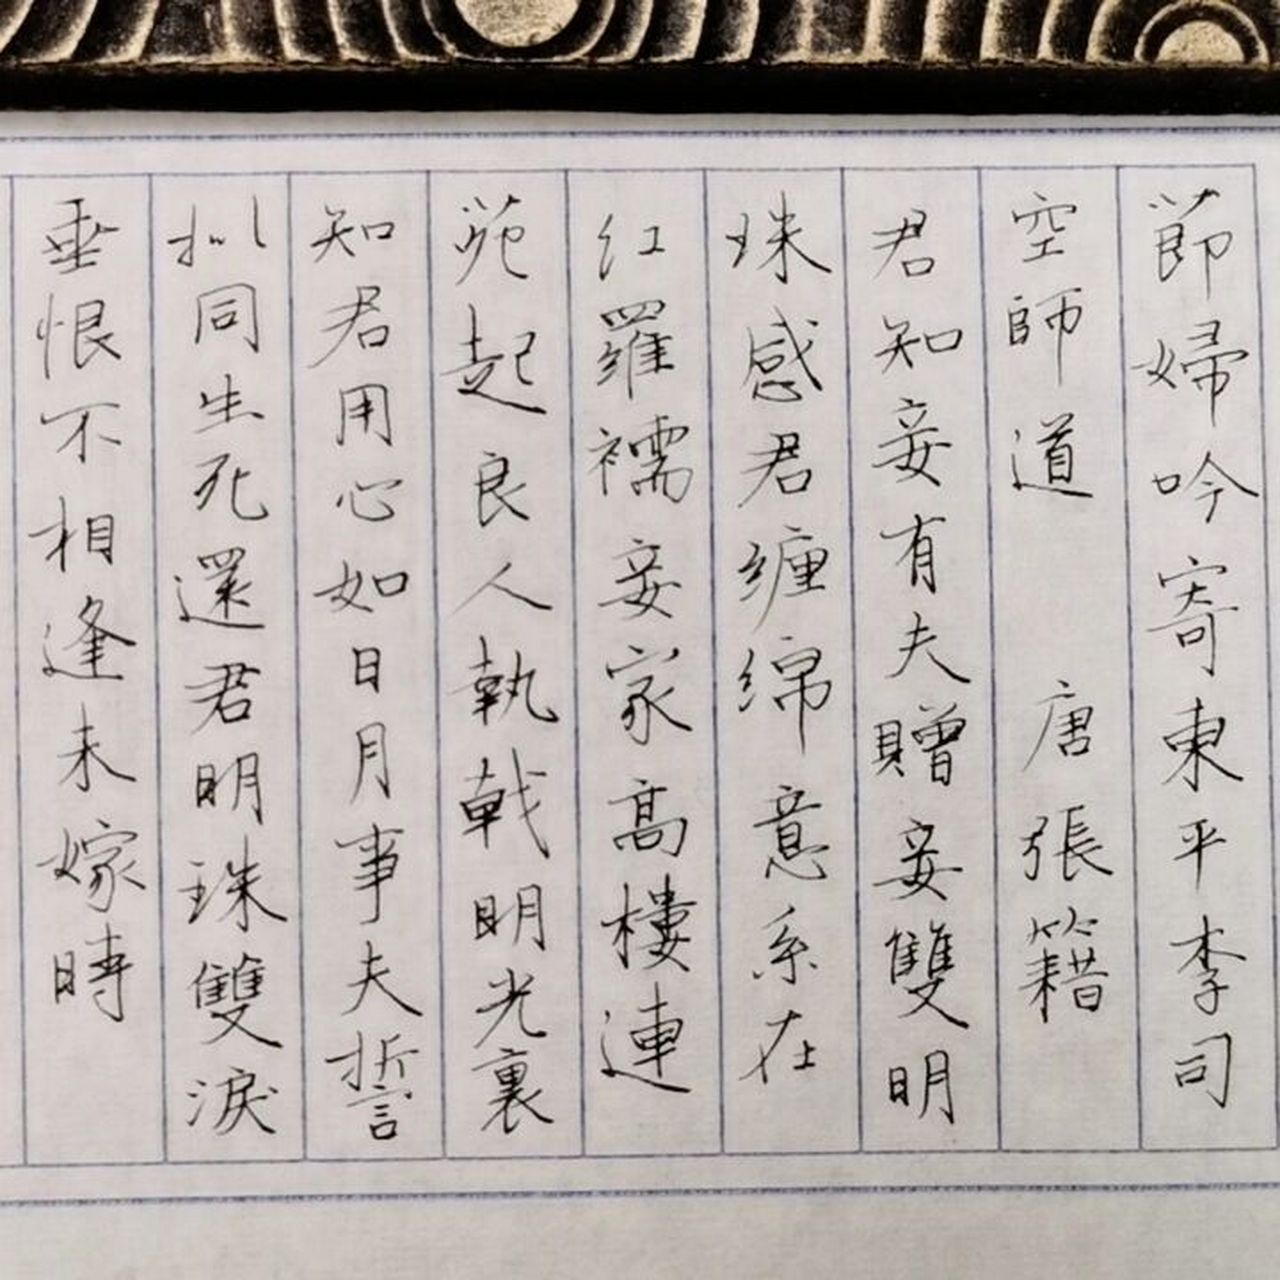 節婦吟寄東平李司
空師道 唐張籍
君知妾有夫贈妾雙明
珠感君缠綿意系在
红羅襦妾家高樓連
苑起良人執戟明光裏
知君用心如日月事夫誓
拟同生死還君明珠雙淚
垂恨不相逢未嫁時